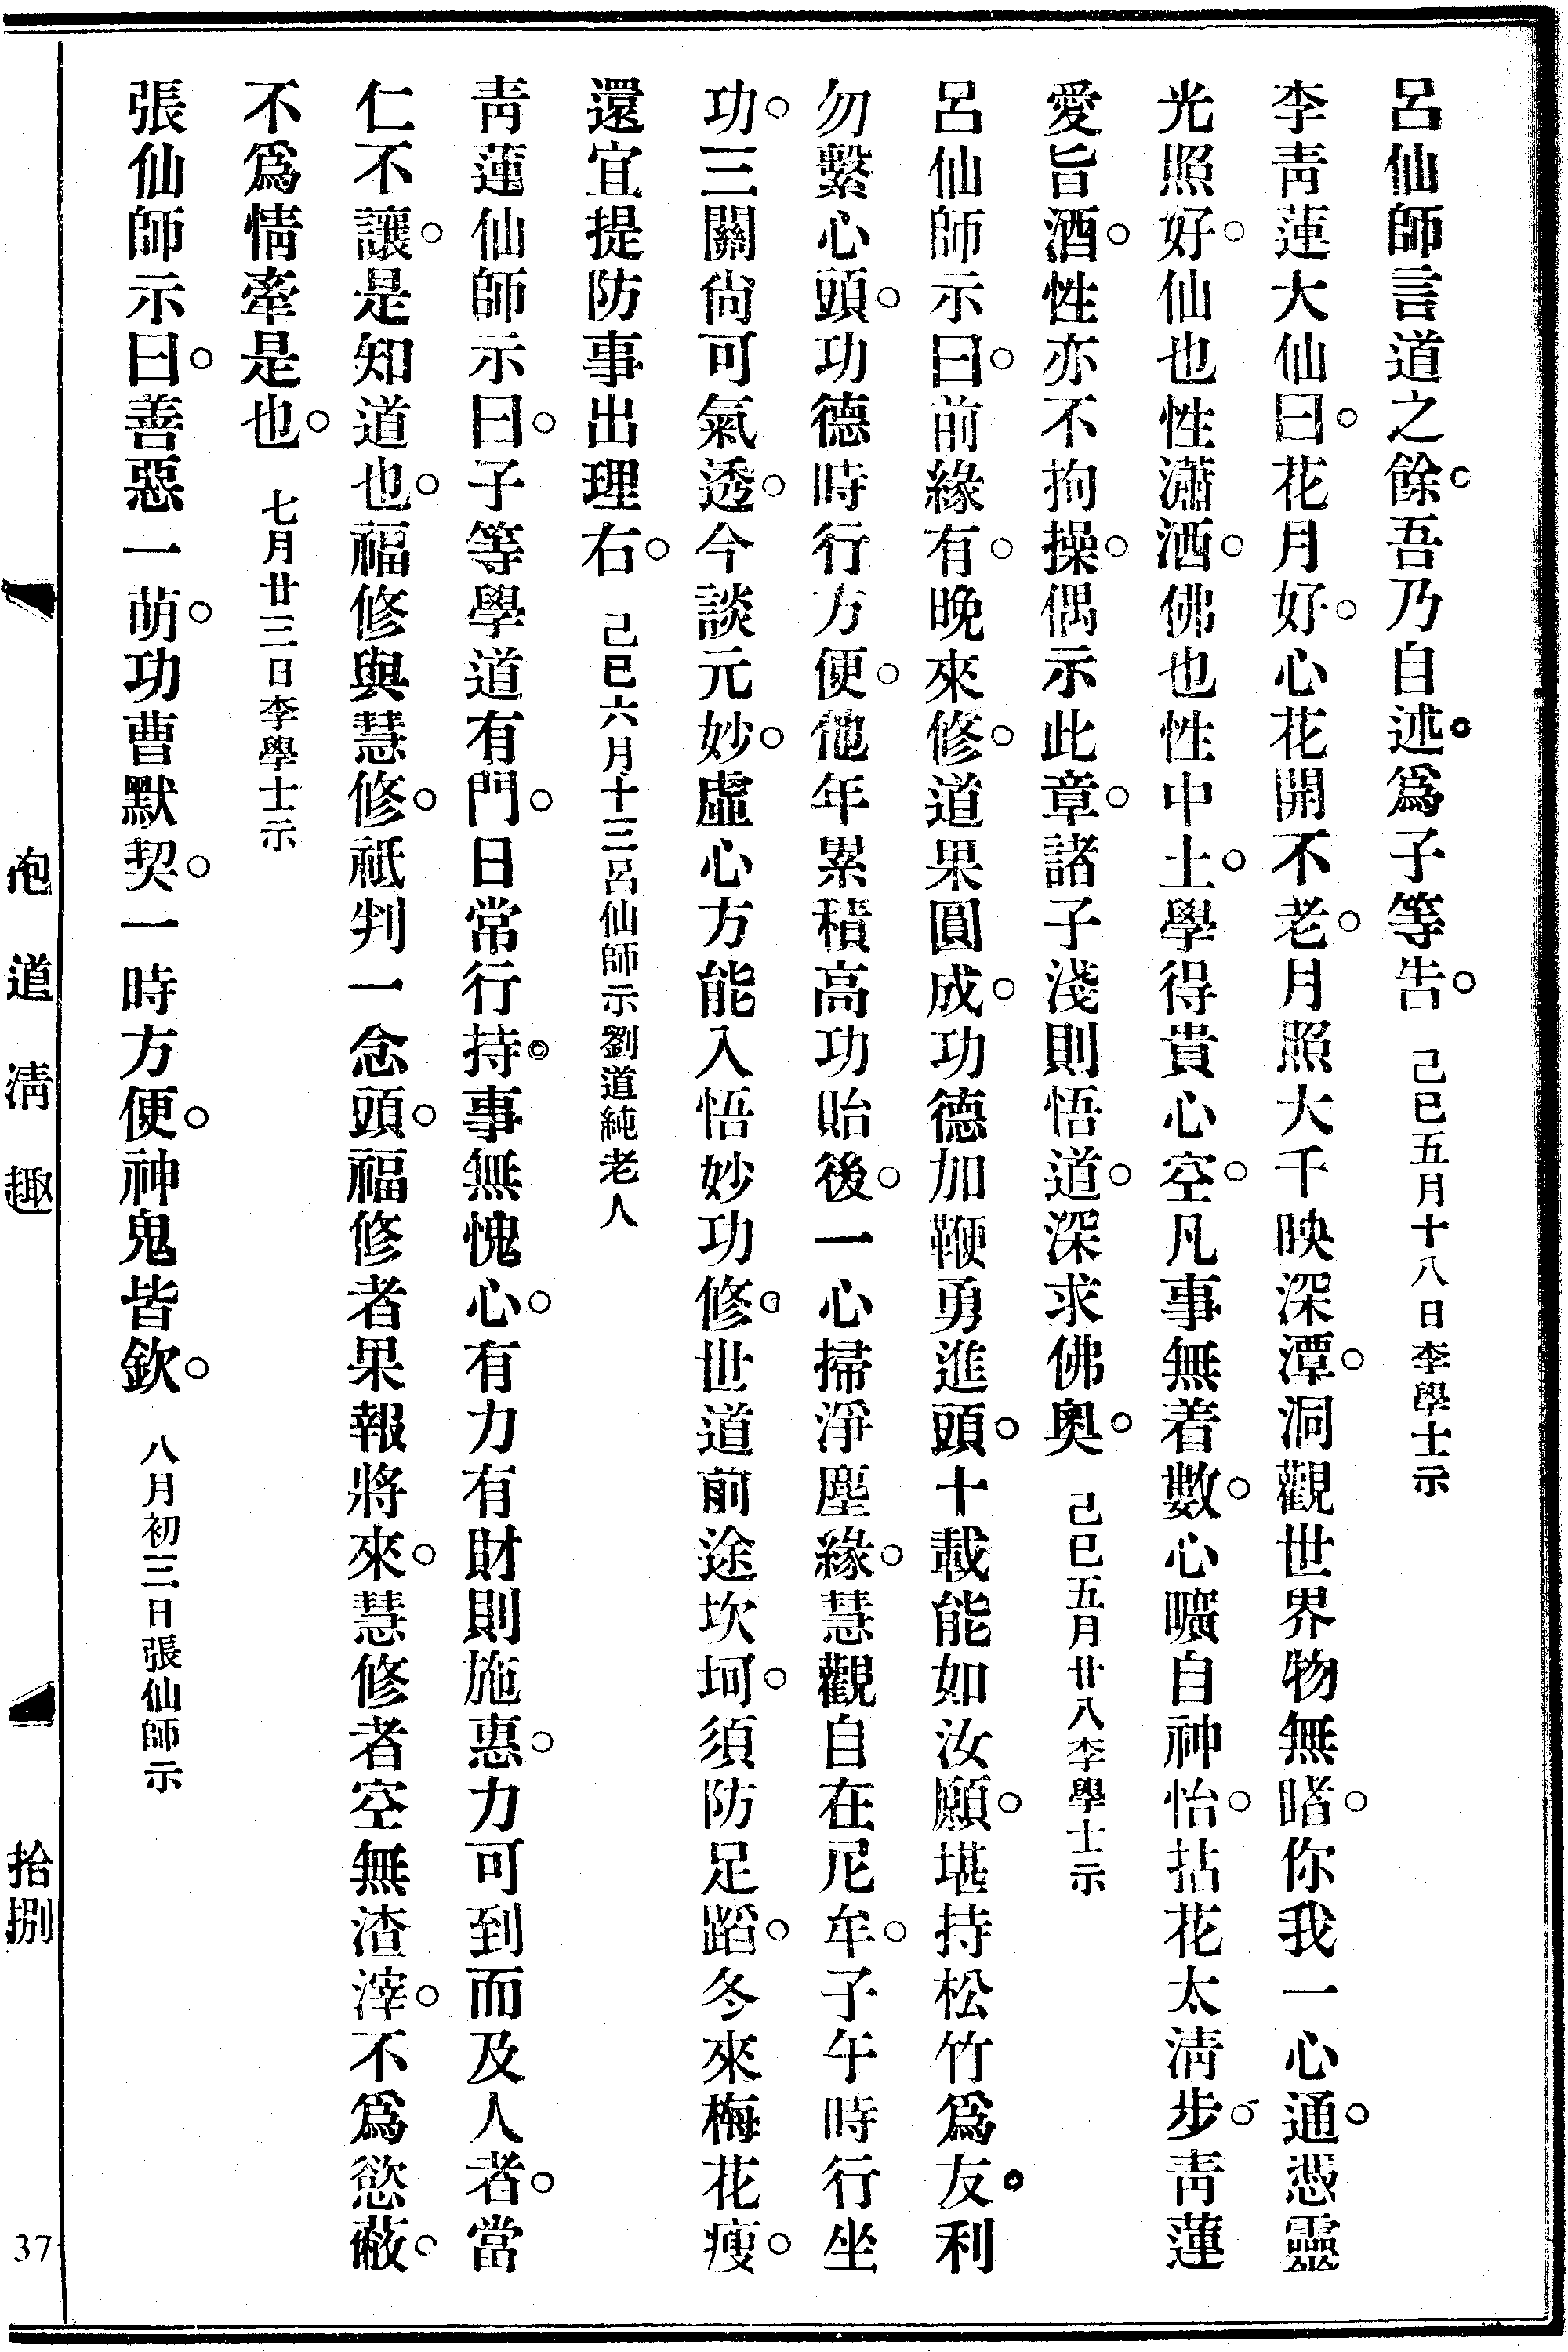 呂仙師言道之餘。吾乃自述。爲子等告。 己巳五月十八日李學士示
李靑蓮大仙曰。花月好。心花開不老。月照大千映深潭。洞觀世界物無暏。你我一心通。憑靈
光照好。仙也性瀟洒。佛也性中土。學得貴心空。凡事無着數。心曠自神怡。拈花太淸步。靑蓮
愛旨酒。性亦不拘操。偶示此章。諸子淺則悟道。深求佛奧。 己巳五月廿八李學士示
呂仙師示曰。前緣有。晚來修。道果圓成。功德加鞭勇進頭。十載能如汝願。堪持松竹爲友。利
勿繫心頭。功德時行方便。他年累積高功貽後。一心掃淨塵緣。慧觀自在尼牟。子午時行坐
功。三關尙可氣透。今談元妙。虛心方能入悟妙功修。世道前途坎坷。須防足蹈。冬來梅花瘦。
還宜提防事出理右。 己巳六月十三呂仙師示劉道純老人
靑蓮仙師示曰。子等學道有門。日常行持。事無愧心。有力有財則施惠。力可到而及人者。當
仁不讓。是知道也。福修與慧修。祗判一念頭。福修者果報將來。慧修者空無渣滓。不爲慾蔽。
不爲情牽是也。 七月廿三日李學士示
張仙師示曰。善惡一萌。功曹默契。一時方便。神鬼皆欽。 八月初三日張仙師示
抱道淸趣
拾捌
37